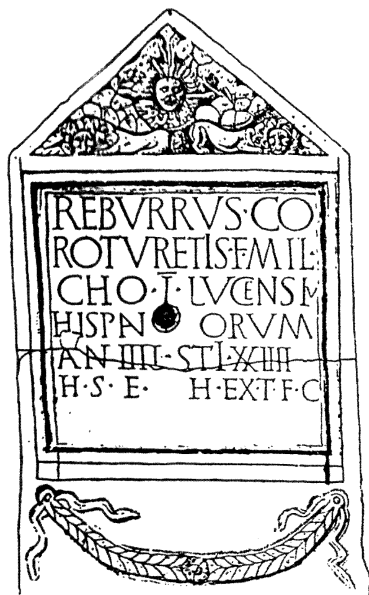 REBVRRVS·CO
ROTVRETIS·F·MIL·
CHO·I·LVCENSIV
HISPN ORVM
AN IIII·STI·XXIIII
H·S·E· H·EXT·F·C